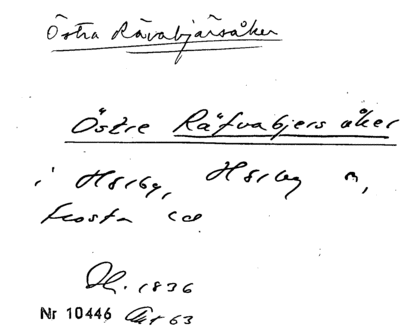 Östra Rävabjärsåker
Östre Räfvabjers åker
i Hörby, Hörby s,
Frosta hd
Dh. 1836
Nr 10446 Akt 63